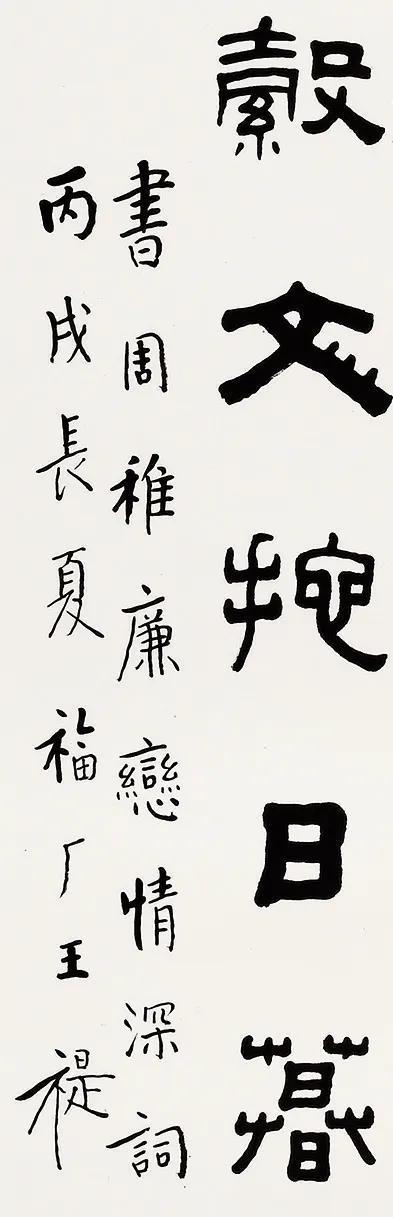 縠文拕日暮
書周稚廉戀情深詞
丙戌長夏福厂王禔